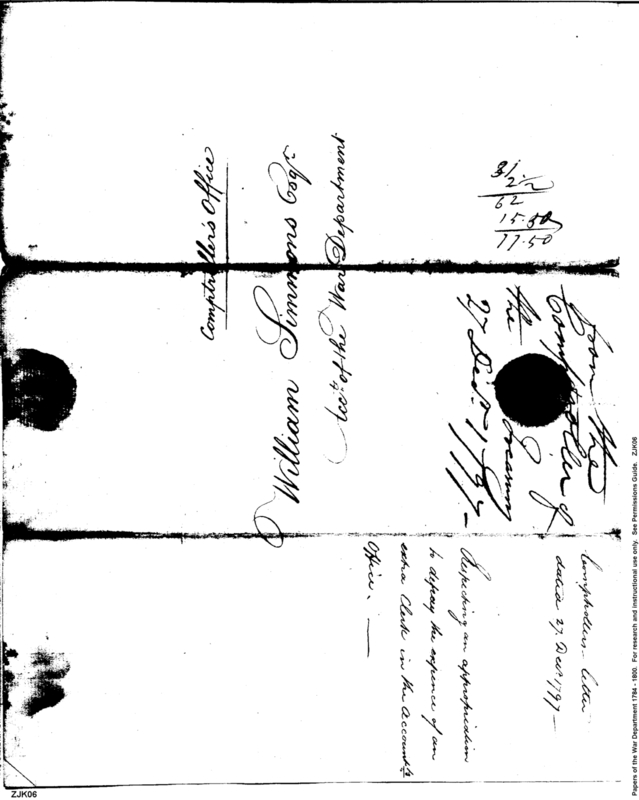 Comptroller's Office
William Simmons Esqr.
Acct. of the War Department
31
2 1/2
62
15.50
77.50
From the
Comptroller of
the Treasury
27 Decr. 1797—
Comptrollers letter
dated 27. Decr. 1797—
Respecting an appropriation
to defray the expence of an
extra Clerk in the Accounts
Office. —
ZJK06
Papers of the War Department 1784 - 1800. For research and instructional use only. See Permissions Guide. ZJK06